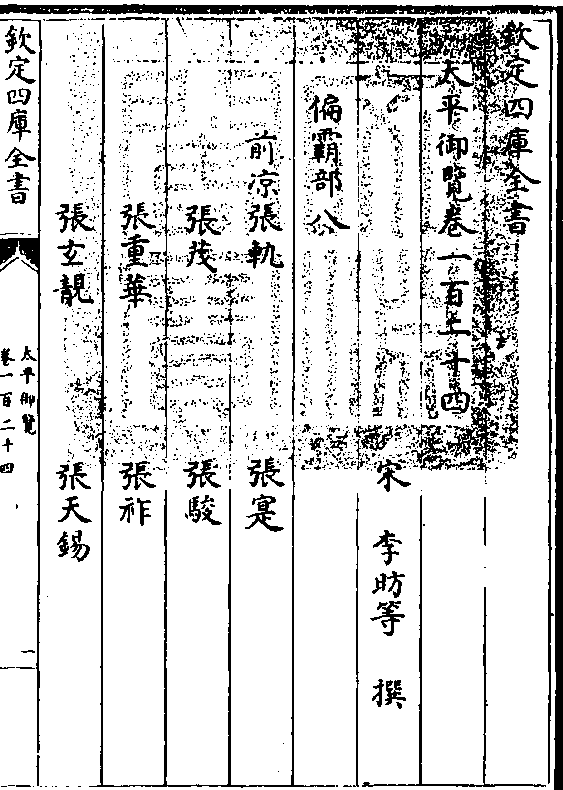 欽定四庫全書
太平御覽卷一百二十四
宋 李昉等 撰
偏霸部八
前凉張軌 張寔
張茂 張駿
張重華 張祚
張玄靚 張天錫
欽定四庫全書
太平御覽
卷一百二十四
一